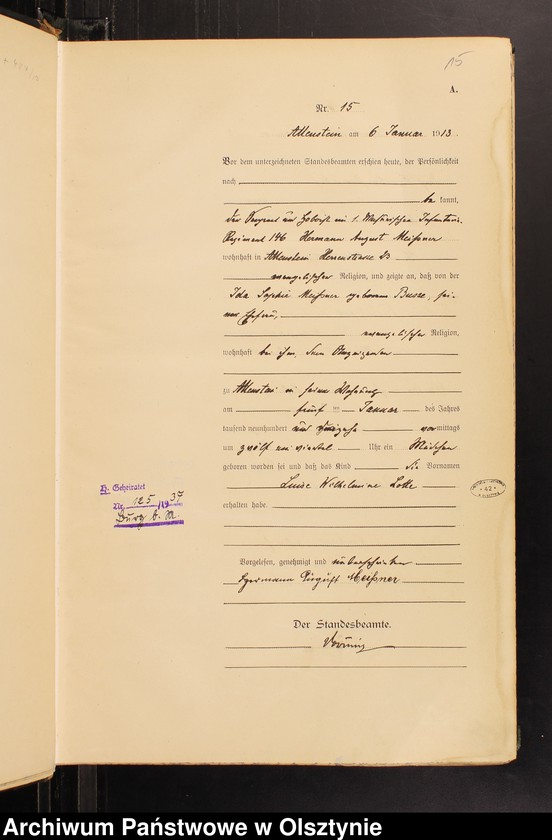 15
A.
Nr. 15
Allenstein am 6 Januar 1913.
Vor dem unterzeichneten Standesbeamten erschien heute, der Persönlichkeit
nach
be kannt,
der Sergeant und Hoboist im 1. Masurischen Infanterie-
Regiment 146 Hermann August Meißner
wohnhaft in Allenstein Herrenstrasse 23
evangelischer Religion, und zeigte an, daß von der
Ida Sophie Meißner geborenen Busse, sei-
ner Ehefrau,
evangelischer Religion,
wohnhaft bei ihm, dem Anzeigenden
zu Allenstein in seiner Wohnung
am fünf ten Januar des Jahres
tausend neunhundert und dreizehn vormittags
um zwölf ein viertel Uhr ein Mädchen
geboren worden sei und daß das Kind die Vornamen
Luise Wilhelmine Lotte
erhalten habe.
Vorgelesen, genehmigt und unterschrieben
Hermann August Meißner
Der Standesbeamte.
Geheiratet
Nr. 125/1937
Burg b. M.
42
Archiwum Państwowe w Olsztynie